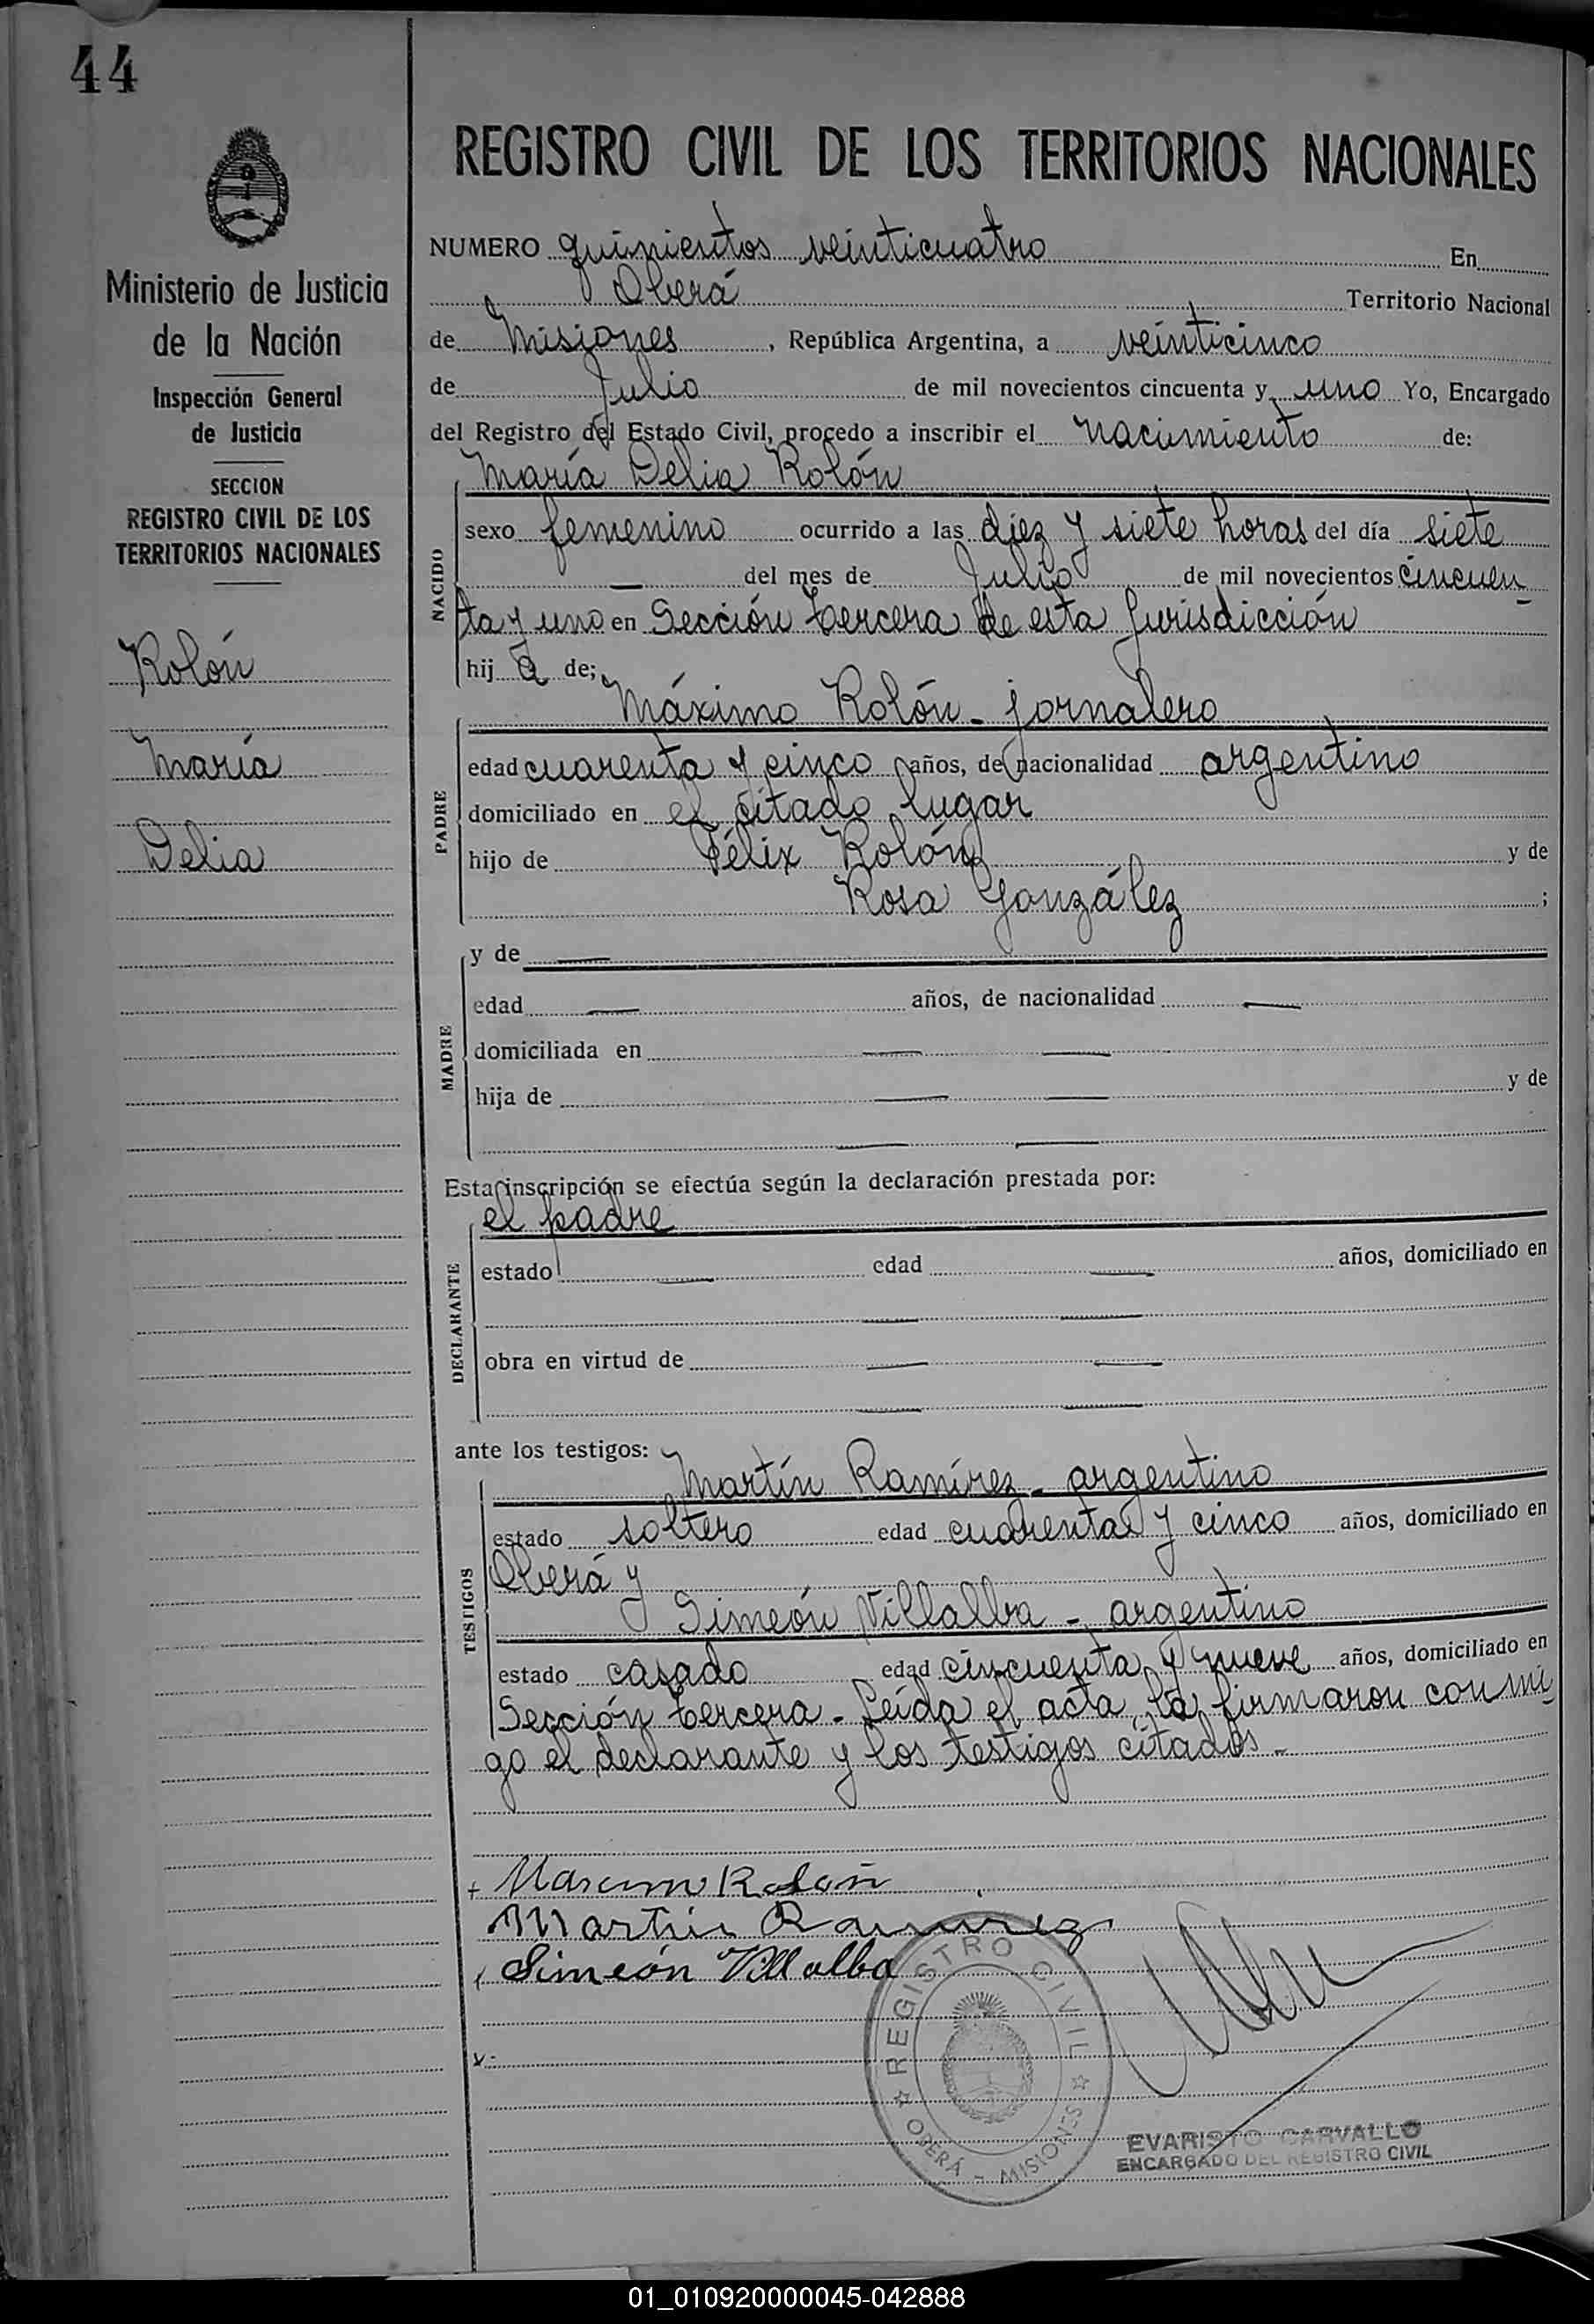 44
REGISTRO CIVIL DE LOS TERRITORIOS NACIONALES
Ministerio de Justicia
de la Nación
Inspección General
de Justicia
SECCION
REGISTRO CIVIL DE LOS
TERRITORIOS NACIONALES
Rolón
María
Delia
NUMERO quinientos veinticuatro En
Oberá Territorio Nacional
de Misiones, República Argentina, a veinticinco
de Julio de mil novecientos cincuenta y uno Yo, Encargado
del Registro del Estado Civil, procedo a inscribir el nacimiento de:
María Delia Rolón
NACIDO
sexo femenino ocurrido a las diez y siete horas del día siete
— del mes de Julio de mil novecientos cincuen
ta y uno en Sección tercera de esta Jurisdicción
hij a de;
Máximo Rolón - jornalero
PADRE
edad cuarenta y cinco años, de nacionalidad argentino
domiciliado en el citado lugar
hijo de Félix Rolón y de
Rosa González ;
MADRE
y de —
edad — años, de nacionalidad —
domiciliada en — —
hija de — — y de
— —
Esta inscripción se efectúa según la declaración prestada por:
el padre
DECLARANTE
estado — edad — años, domiciliado en
— —
obra en virtud de — —
— —
ante los testigos:
Martín Ramírez - argentino
TESTIGOS
estado soltero edad cuarenta y cinco años, domiciliado en
Oberá y
Simeón Villalba - argentino
estado casado edad cincuenta y nueve años, domiciliado en
Sección tercera - Leída el acta, la firmaron conmi
go el declarante y los testigos citados -
Rolón
Martin Ramirez
Simeón Villalba
REGISTRO CIVIL
OBERÁ - MISIONES
EVARISTO CARVALLO
ENCARGADO DEL REGISTRO CIVIL
01_010920000045-042888